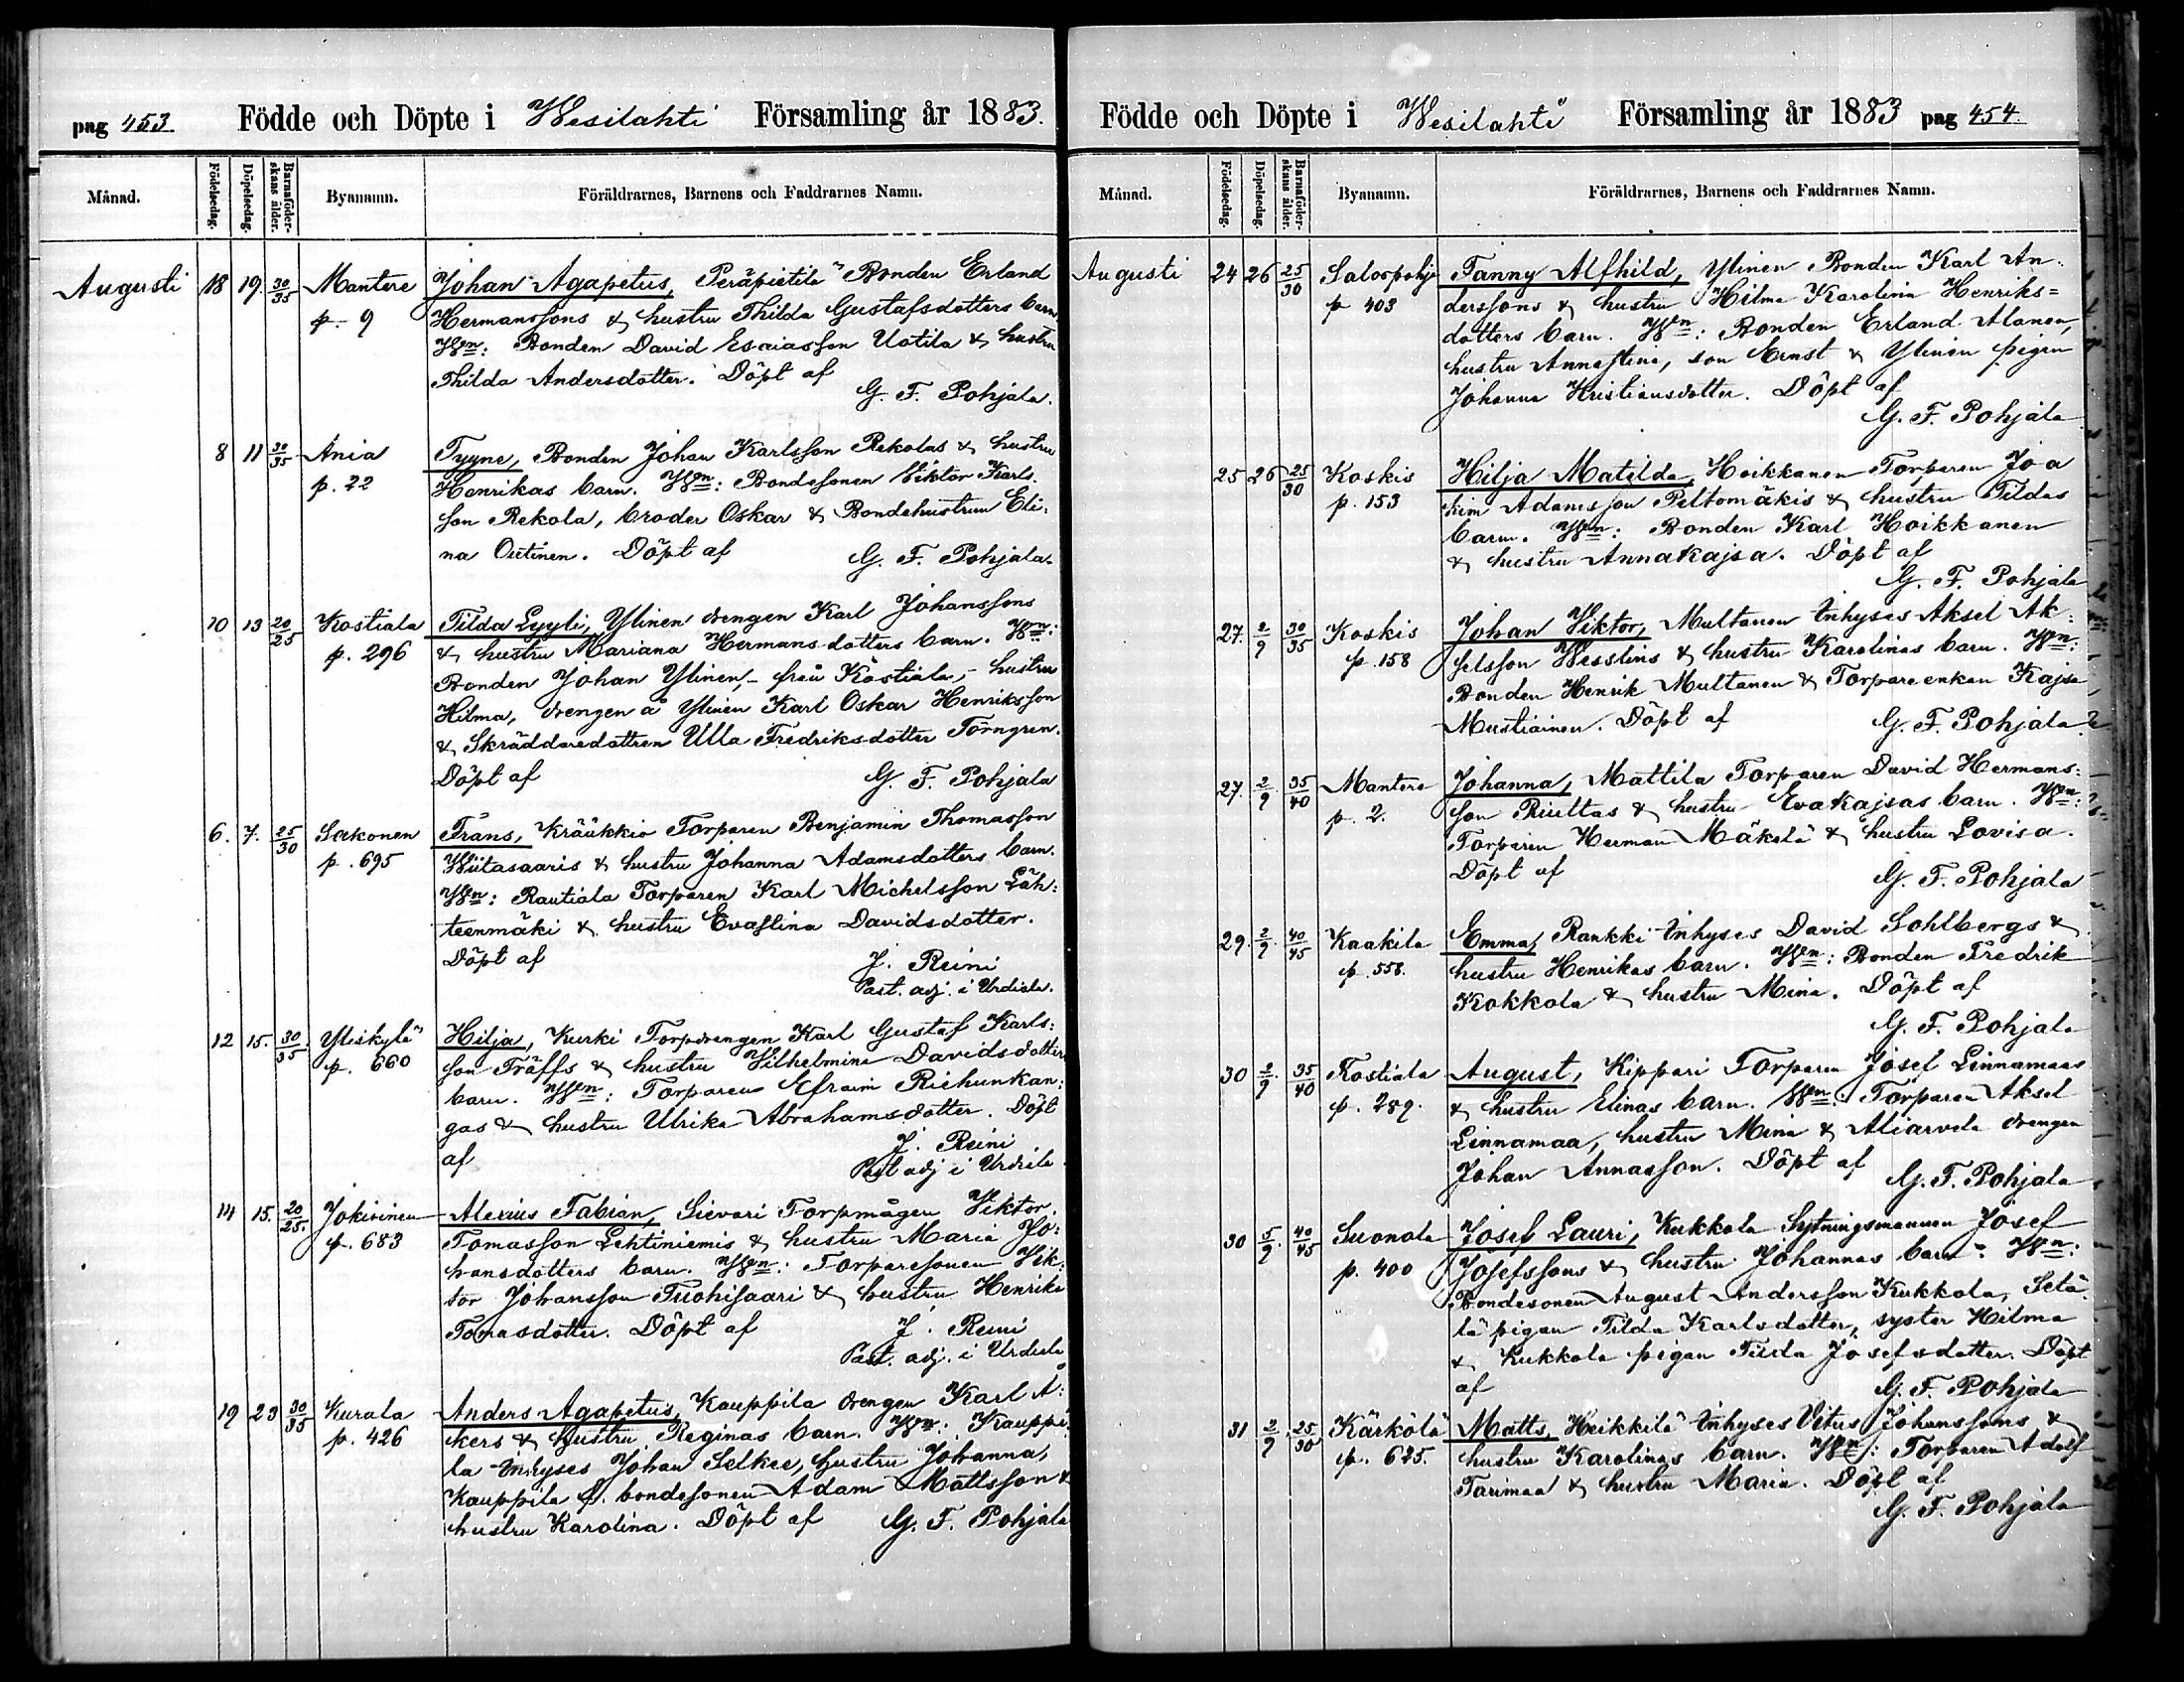 pag 453. Födde och Döpte i Wesilahti Församling år 1883.
Månad. Födelsedag. Döpelsedag. Barnaföderskans ålder. Byanamn. Föräldrarnes, Barnens och Faddrarnes Namn.
Augusti 18 19. 30/35 Mantere Johan Agapetus, Peräpietilä Bonden Erland
p. 9 Hermanssons & hustru Thilda Gustafsdotters barn
Wn: Bonden David Esaiasson Uotila & hustru
Thilda Andersdotter. Döpt af
G. F. Pohjala.
8 11 30/35 Ania Tyyne, Bonden Johan Karlsson Rekolas & hustru
p. 22 Henrikas barn. Wn: Bondesonen Viktor Karls-
son Rekola, broder Oskar & Bondehustrun Eli-
na Outinen. Döpt af G. F. Pohjala.
10 13 20/25 Kostiala Tilda Lyyli, Ylinen drengen Karl Johanssons
p. 296 & hustru Mariana Hermansdotters barn. Wn:
Bonden Johan Ylinen, - från Kostiala, - hustru
Hilma, drengen å Ylinen Karl Oskar Henriksson
& Skräddaredottren Ulla Fredriksdotter Törngren.
Döpt af G. F. Pohjala
6. 7. 25/30 Sakonen Frans, Kräükkiö Torparen Benjamin Thomasson
p. 695 Wiitasaaris & hustru Johanna Adamsdotters barn.
Wn: Rautiala Torparen Karl Michelsson Läh-
teenmäki & hustru Evastina Davidsdotter.
Döpt af J. Reini
Past. adj. i Urdiala.
12 15. 30/35 Yliskylä Hilja, Kurki Torpdrengen Karl Gustaf Karls-
p. 660 son Träffs & hustru Vilhelmina Davidsdotters
barn. Wn: Torparen Efraim Riehunkan-
gas & hustru Ulrika Abrahamsdotter. Döpt
af J. Reini
Past adj i Urdiala
14 15. 20/25. Jokioinen Alexius Fabian, Sievari Torpmågen Viktor
p. 683 Tomasson Lehtiniemis & hustru Maria Jo-
hansdotters barn. Wn: Torparesonen Vik-
tor Johansson Tuohisaari & hustru Henrika
Tomasdotter. Döpt af J. Reini
Past. adj. i Urdiala
19 23 30/35 Kurala Anders Agapetus, Kauppila drengen Karl Å-
p. 426 kers & hustru Reginas barn. Wn: Kauppi-
la Inhyses Johan Selkee, hustru Johanna,
Kauppila f. bondesonen Adam Mattsson &
hustru Karolina. Döpt af G. F. Pohjala
Födde och Döpte i Wesilahti Församling år 1883 pag 454.
Månad. Födelsedag. Döpelsedag. Barnaföderskans ålder. Byanamn. Föräldrarnes, Barnens och Faddrarnes Namn.
Augusti 24 26 25/30 Salospohja Fanny Alfhild, Ylinen Bonden Karl An-
p 403 derssons & hustru Hilma Karolina Henriks=
dotters barn. Wn: Bonden Erland Alanen,
hustru Annastina, son Ernst & Ylinen pigan
Johanna Kristiansdotter. Döpt af
G. F. Pohjala
25 26 25/30 Koskis Hilja Matilda, Hoikkanen Torparen Joa
p. 153 kim Adamsson Peltomäkis & hustru Tildas
barn. Wn: Bonden Karl Hoikkanen
& hustru Annakajsa. Döpt af
G. F. Pohjala
27. 2/9 30/35 Koskis Johan Viktor, Multanen Inhyses Aksel Ak-
p. 158 selsson Wesslins & hustru Karolinas barn. Wn:
Bonden Henrik Multanen & Torpareenkan Kajsa
Mustiainen. Döpt af G. F. Pohjala
27. 2/9 35/40 Mantere Johanna, Mattila Torparen David Hermans-
p. 2. son Riuttas & hustru Evakajsas barn. Wn:
Torparen Herman Mäkelä & hustru Lovisa.
Döpt af G. F. Pohjala
29. 2/9 40/45 Kaakila Emma, Rankki Inhyses David Sohlbergs &
p. 558. hustru Henrikas barn. Wn: Bonden Fredrik
Kokkola & hustru Mina. Döpt af
G. F. Pohjala
30 2/9. 35/40 Kostiala August, Kippari Torparen Josef Linnamaas
p. 289. & hustru Elinas barn. Wn: Torparen Aksel
Linnamaa, hustru Mina & Aliarvela drengen
Johan Annasson. Döpt af G. F. Pohjala
30 5/9. 40/45 Suonola Josef Lauri, Kukkola Sytningsmannen Josef
p. 400 Josefssons & hustru Johannas barn. Wn:
Bondesonen August Andersson Kukkola, Setä-
lä pigan Tilda Karlsdotter, syster Hilma
& Kukkola pigan Tilda Josefsdotter. Döpt
af G. F. Pohjala
31 2/9 25/30 Kärkölä Matts, Heikkilä Inhyses Vitus Johanssons &
p. 675. hustru Karolinas barn. Wn: Torparen Adolf
Tarimaa & hustru Maria. Döpt af
G. F. Pohjala